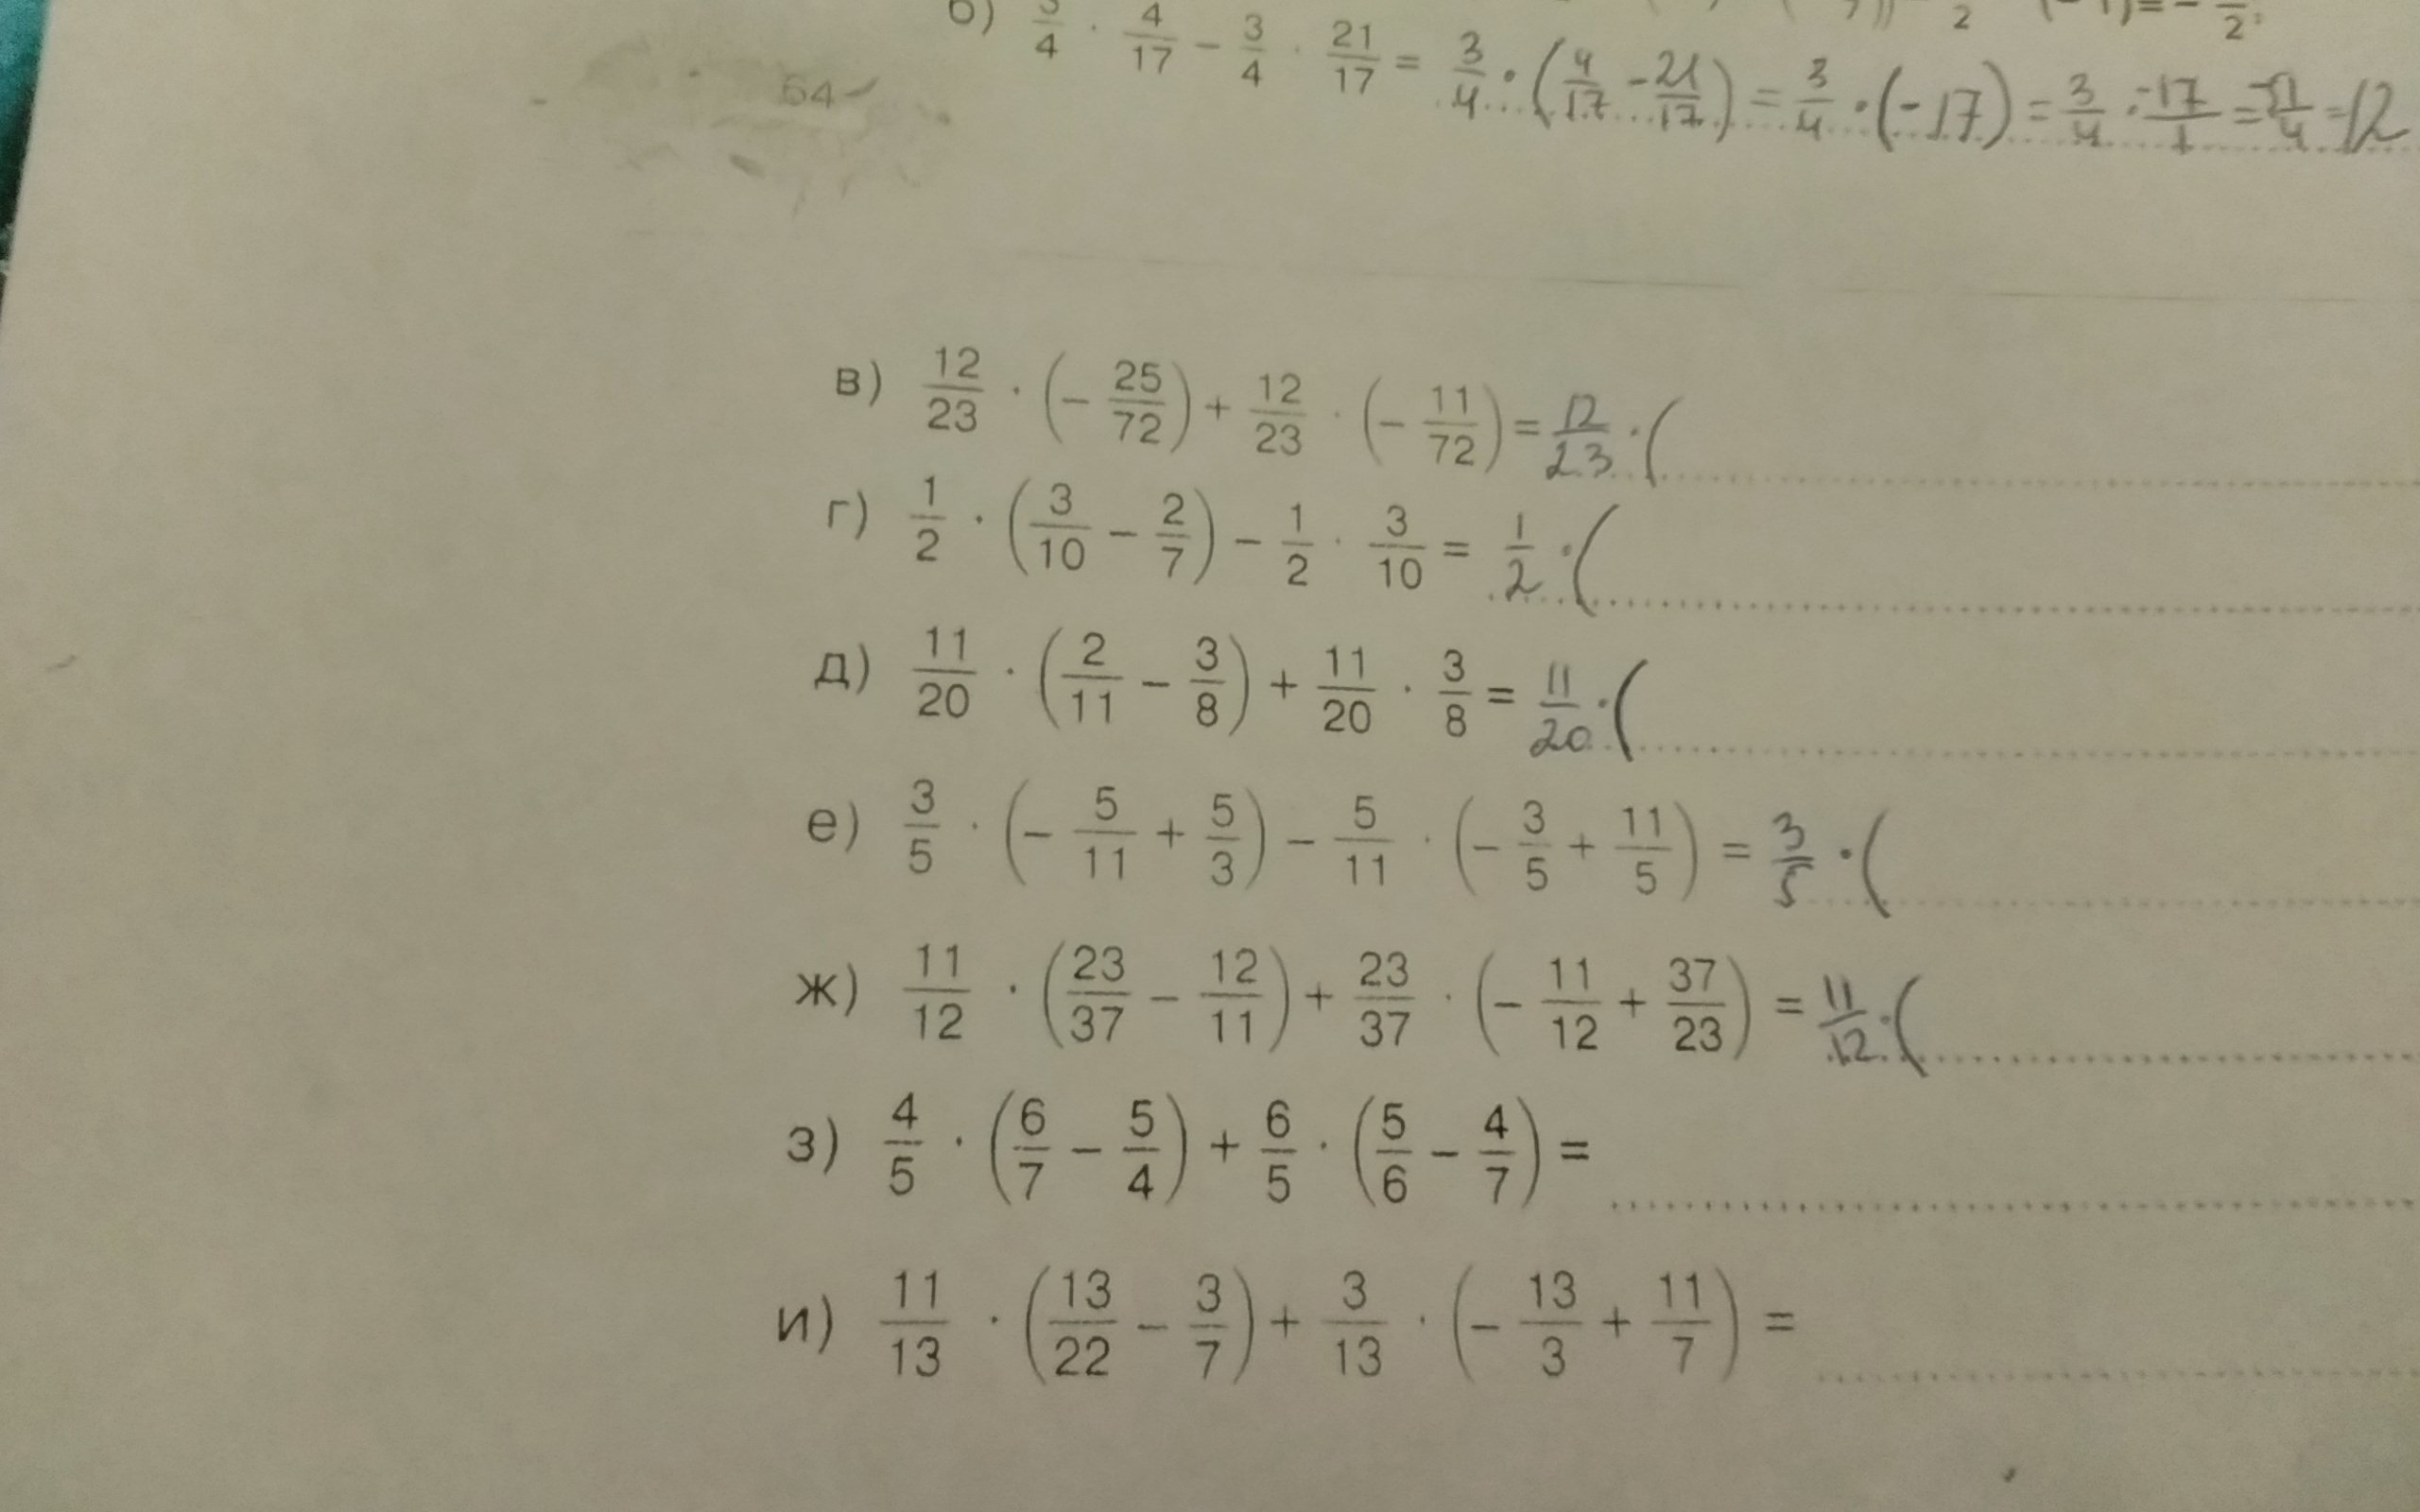 б) 3/4 · 4/17 − 3/4 · 21/17 = 3/4 · (4/17 − 21/17) = 3/4 · (−17) = 3/4 · −17/1 =
64
в) 12/23 · (− 25/72) + 12/23 · (− 11/72) = 12/23 · (
г) 1/2 · (3/10 − 2/7) − 1/2 · 3/10 = 1/2 · (
д) 11/20 · (2/11 − 3/8) + 11/20 · 3/8 = 11/20 · (
е) 3/5 · (− 5/11 + 5/3) − 5/11 · (− 3/5 + 11/5) = 3/5 · (
ж) 11/12 · (23/37 − 12/11) + 23/37 · (− 11/12 + 37/23) = 11/12 · (
з) 4/5 · (6/7 − 5/4) + 6/5 · (5/6 − 4/7) =
и) 11/13 · (13/22 − 3/7) + 3/13 · (− 13/3 + 11/7) =